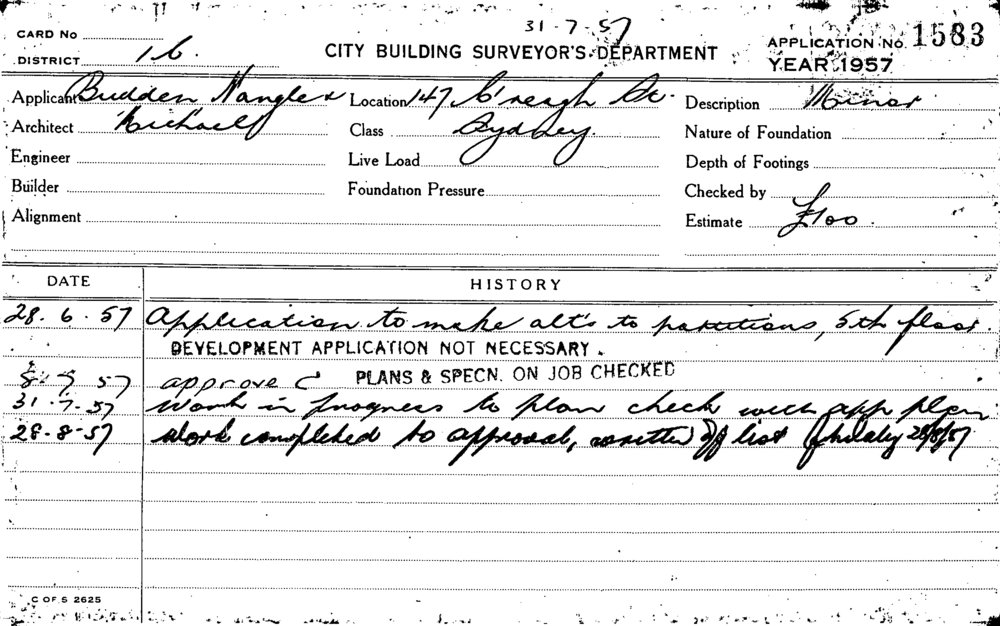 31-7-57
CARD No
CITY BUILDING SURVEYOR'S DEPARTMENT
APPLICATION No. 1583
DISTRICT 16.
YEAR 1957
Applicant Budden Nangle & Location 147 C'reagh St. Description Minor
Architect Michael Class Sydney. Nature of Foundation
Engineer Live Load Depth of Footings
Builder Foundation Pressure Checked by
Alignment Estimate £100.
DATE HISTORY
28.6.57 Application to make alt's to partitions, 5th floor.
DEVELOPMENT APPLICATION NOT NECESSARY.
57 approve PLANS & SPECN. ON JOB CHECKED
31-7-57 Work in progress to plan check with app plan
28-8-57 Work completed to approval, written off list 28/8/57
C OF S 2625